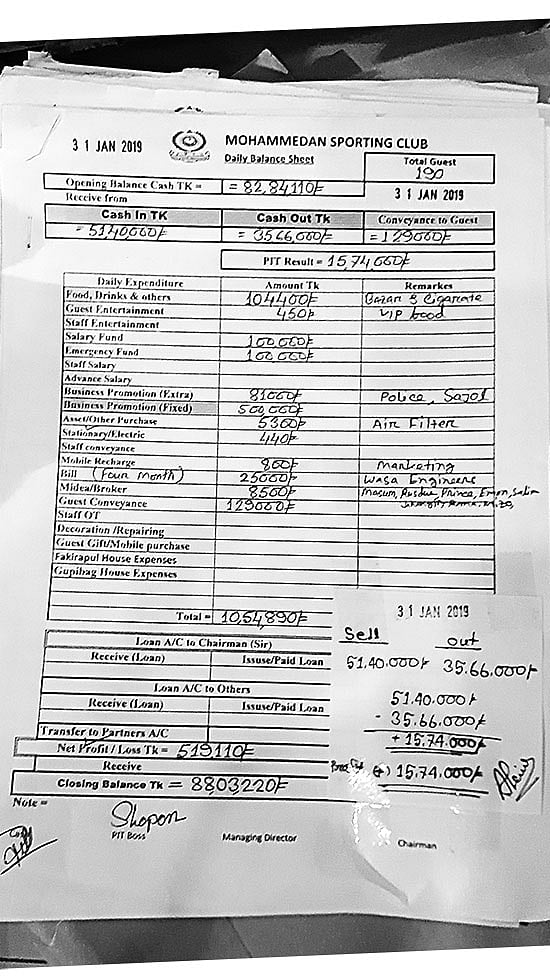 31 JAN 2019
MOHAMMEDAN SPORTING CLUB
Daily Balance Sheet
Total Guest
190
Opening Balance Cash TK = = 82,84110/-
31 JAN 2019
Receive from
Cash In TK Cash Out Tk Conveyance to Guest
= 51,40,000/- = 3566,000/- = 129000/-
PIT Result = 15,74,000/-
Daily Expenditure Amount Tk Remarkes
Food, Drinks & others 104400/- Bazar & Cigarate
Guest Entertainment 450/- VIP food
Staff Entertainment
Salary Fund 100,000/-
Emergency Fund 100,000/-
Staff Salary
Advance Salary
Business Promotion (Extra) 81000/- Police, Sajol
Business Promotion (Fixed) 500,000/-
Asset/Other Purchase 5300/- Air Filter
Stationary/Electric 440/-
Staff conveyance
Mobile Recharge 800/- marketing
Bill (Four Month) 25000/- Wasa Engineers
Midea/Broker 8500/- Masum, Prince, Emon, Salim
Guest Conveyance 129000/-
Staff OT
Decoration /Repairing
Guest Gift/Mobile purchase
Fakirapul House Expenses
Gupibag House Expenses
Total = 10,54,890/-
Loan A/C to Chairman (Sir)
Receive (Loan) Issuse/Paid Loan
Loan A/C to Others
Receive (Loan) Issuse/Paid Loan
Transfer to Partners A/C
Net Profit / Loss Tk = 519110/-
Receive
Closing Balance Tk = 8803220/-
Note =
Shopon
PIT Boss Managing Director Chairman
31 JAN 2019
Sell out
51.40.000/- 35.66.000/-
51.40.000/-
- 35.66.000/-
+ 15.74.000/-
(+) 15.74.000/-